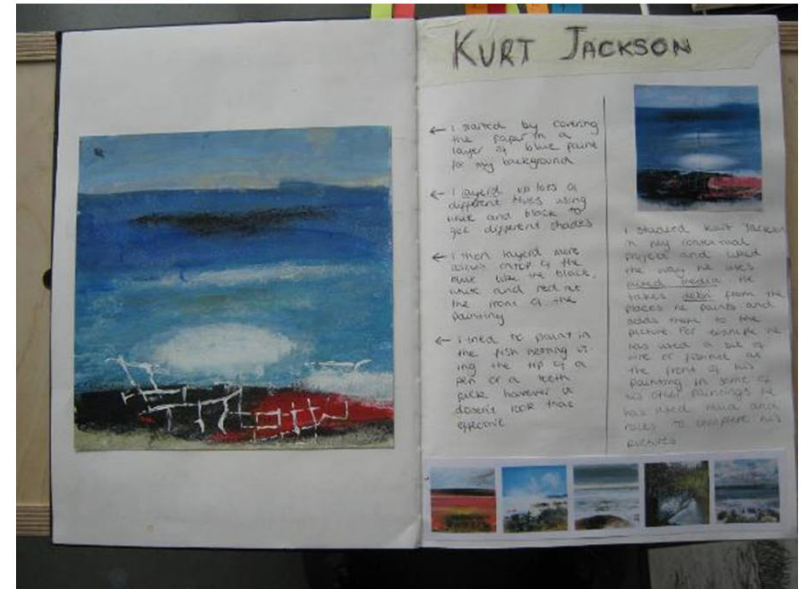 KURT JACKSON
← I started by covering
the paper in a
layer of blue paint
for my background
← I layerd up lots of
different blues using
white and black to
get different shades
← I then layerd more
on top of the
blue like the black,
white and red at
the front of the
painting
← I tried to paint in
the fish netting us-
ing the tip of a
pen or a teeth
pick however it
doesn't look that
effective
I studied Kurt Jackson
in my
project and liked
the way he uses
mixed media. He
takes from the
places he paints and
adds them to the
picture. For example he
has used a bit of
wire or fishnet at
the front of his
painting in some of
his other paintings he
has used mud and
rocks to complete his
pictures